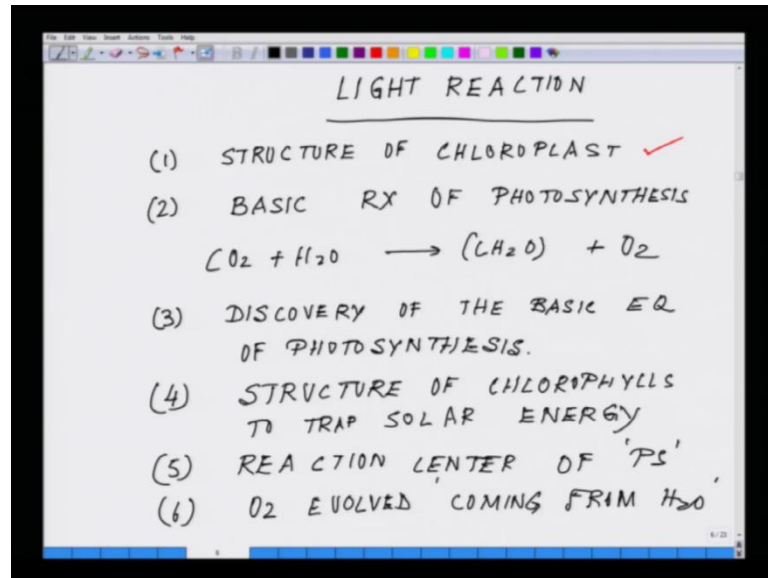 File Edit View Insert Actions Tools Help
LIGHT REACTION
(1) STRUCTURE OF CHLOROPLAST
(2) BASIC RX OF PHOTOSYNTHESIS
CO2 + H2O → (CH2O) + O2
(3) DISCOVERY OF THE BASIC EQ
OF PHOTOSYNTHESIS.
(4) STRUCTURE OF CHLOROPHYLLS
TO TRAP SOLAR ENERGY
(5) REACTION CENTER OF 'PS'
(6) O2 EVOLVED 'COMING FROM H2O'
6/23
6